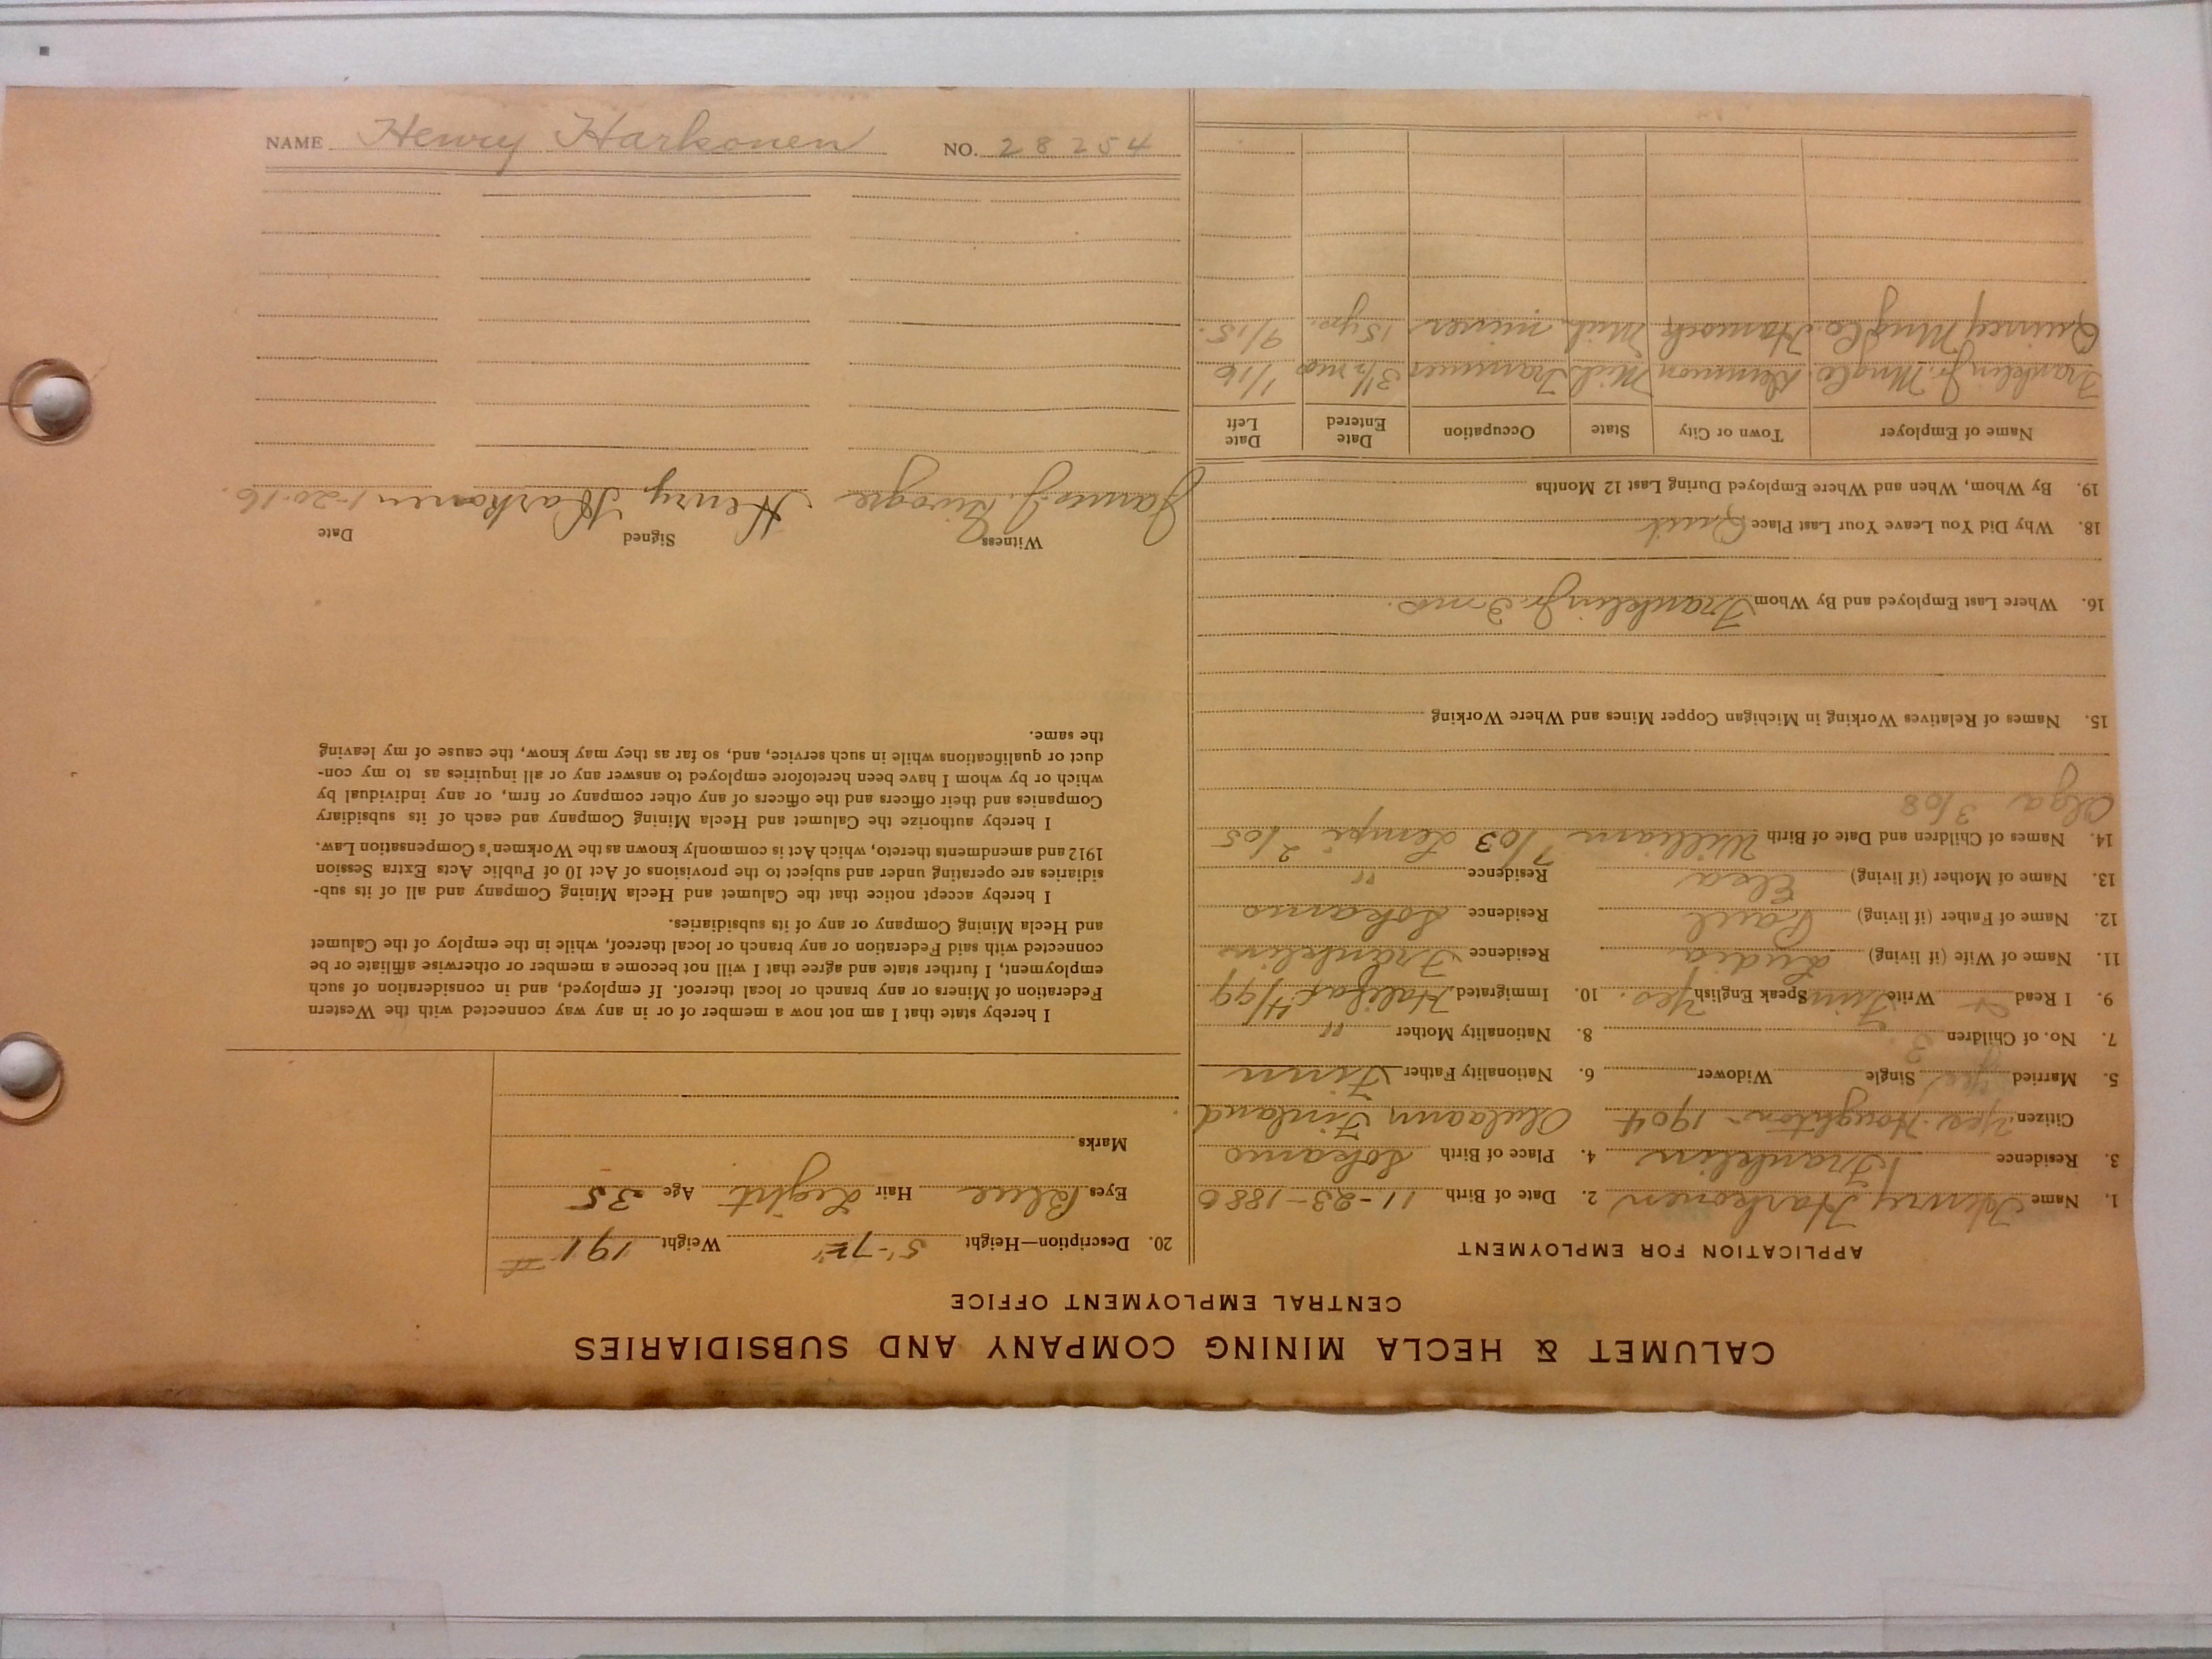 CALUMET & HECLA MINING COMPANY AND SUBSIDIARIES
CENTRAL EMPLOYMENT OFFICE
APPLICATION FOR EMPLOYMENT
1. Name Henry Harkonen 2. Date of Birth 11-23-1880
3. Residence Franklin 4. Place of Birth Sokamo
Citizen Yes. Houghton - 1904 Finland
5. Married Yes Single Widower 6. Nationality Father Finn
7. No. of Children 3 8. Nationality Mother "
9. I Read Write Finn Speak English Yes. 10. Immigrated Halifax 4/99
11. Name of Wife (if living) Lydia Residence Franklin
12. Name of Father (if living) Paul Residence Sokamo
13. Name of Mother (if living) Elsa Residence "
14. Names of Children and Date of Birth William 7/03 Lempi 2/05
Olga 3/08
15. Names of Relatives Working in Michigan Copper Mines and Where Working
16. Where Last Employed and By Whom Franklin Jr. 3 mo.
18. Why Did You Leave Your Last Place Quit
19. By Whom, When and Where Employed During Last 12 Months
Name of Employer Town or City State Occupation Date Entered Date Left
Franklin Jr. Mng Co. Demmon Mich Trammer 3 1/2 mo 1/16
Quincy Mng Co. Hancock Mich. miner 15 yrs. 9/15.
20. Description—Height 5'-7 Weight 191 #
Eyes Blue Hair Light Age 35
Marks
I hereby state that I am not now a member of or in any way connected with the Western
Federation of Miners or any branch or local thereof. If employed, and in consideration of such
employment, I further state and agree that I will not become a member or otherwise affiliate or be
connected with said Federation or any branch or local thereof, while in the employ of the Calumet
and Hecla Mining Company or any of its subsidiaries.
I hereby accept notice that the Calumet and Hecla Mining Company and all of its sub-
sidiaries are operating under and subject to the provisions of Act 10 of Public Acts Extra Session
1912 and amendments thereto, which Act is commonly known as the Workmen's Compensation Law.
I hereby authorize the Calumet and Hecla Mining Company and each of its subsidiary
Companies and their officers and the officers of any other company or firm, or any individual by
which or by whom I have been heretofore employed to answer any or all inquiries as to my con-
duct or qualifications while in such service, and, so far as they may know, the cause of my leaving
the same.
Witness Signed Date
James J. Henry Harkonen 1-20-16.
NAME Henry Harkonen NO. 28254